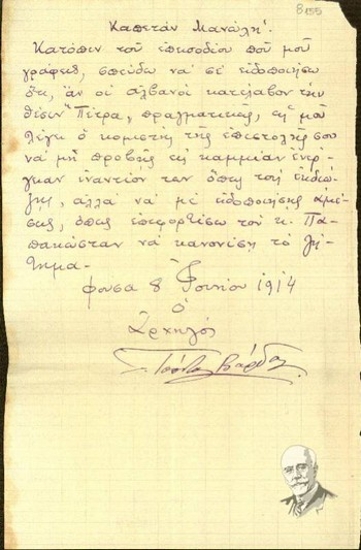 8155
Καπετάν Μανώλη.
Κατόπιν του επεισοδίου που μου
γράφεις, σπεύδω να σε ειδοποιήσω
ότι, αν οι αλβανοί κατέλαβον την
θέσιν "Πέτρα, πραγματικώς, ως μοι
λέγει ο κομιστής της επιστολής σου
να μη προβής εις καμμίαν ενέρ-
γειαν εναντίον των όπως τους εκδιώ-
ξης, αλλά να με ειδοποιήσης αμέ-
σως, όπως επιφορτίσω τον κ. Πα-
πακώσταν να κανονίση το ζή-
τημα-
8 Ιουνίου 1914
Ο
Αρχηγός
Γ. Τσόντος Βάρδας